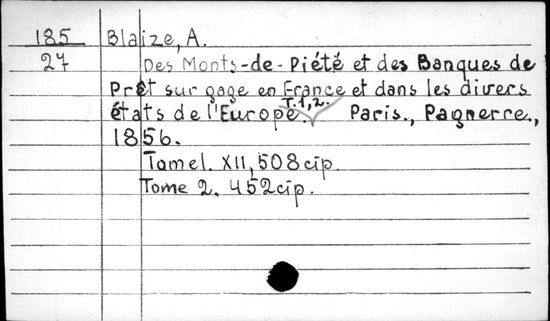 185 Blaize, A.
27 Des Monts-de-Piété et des Banques de
Prêt sur gage en France et dans les divers
états de l'Europe. T.1,2. Paris., Pagnerre.,
1856.
Tome1. XII, 508cip.
Tome 2. 452cip.